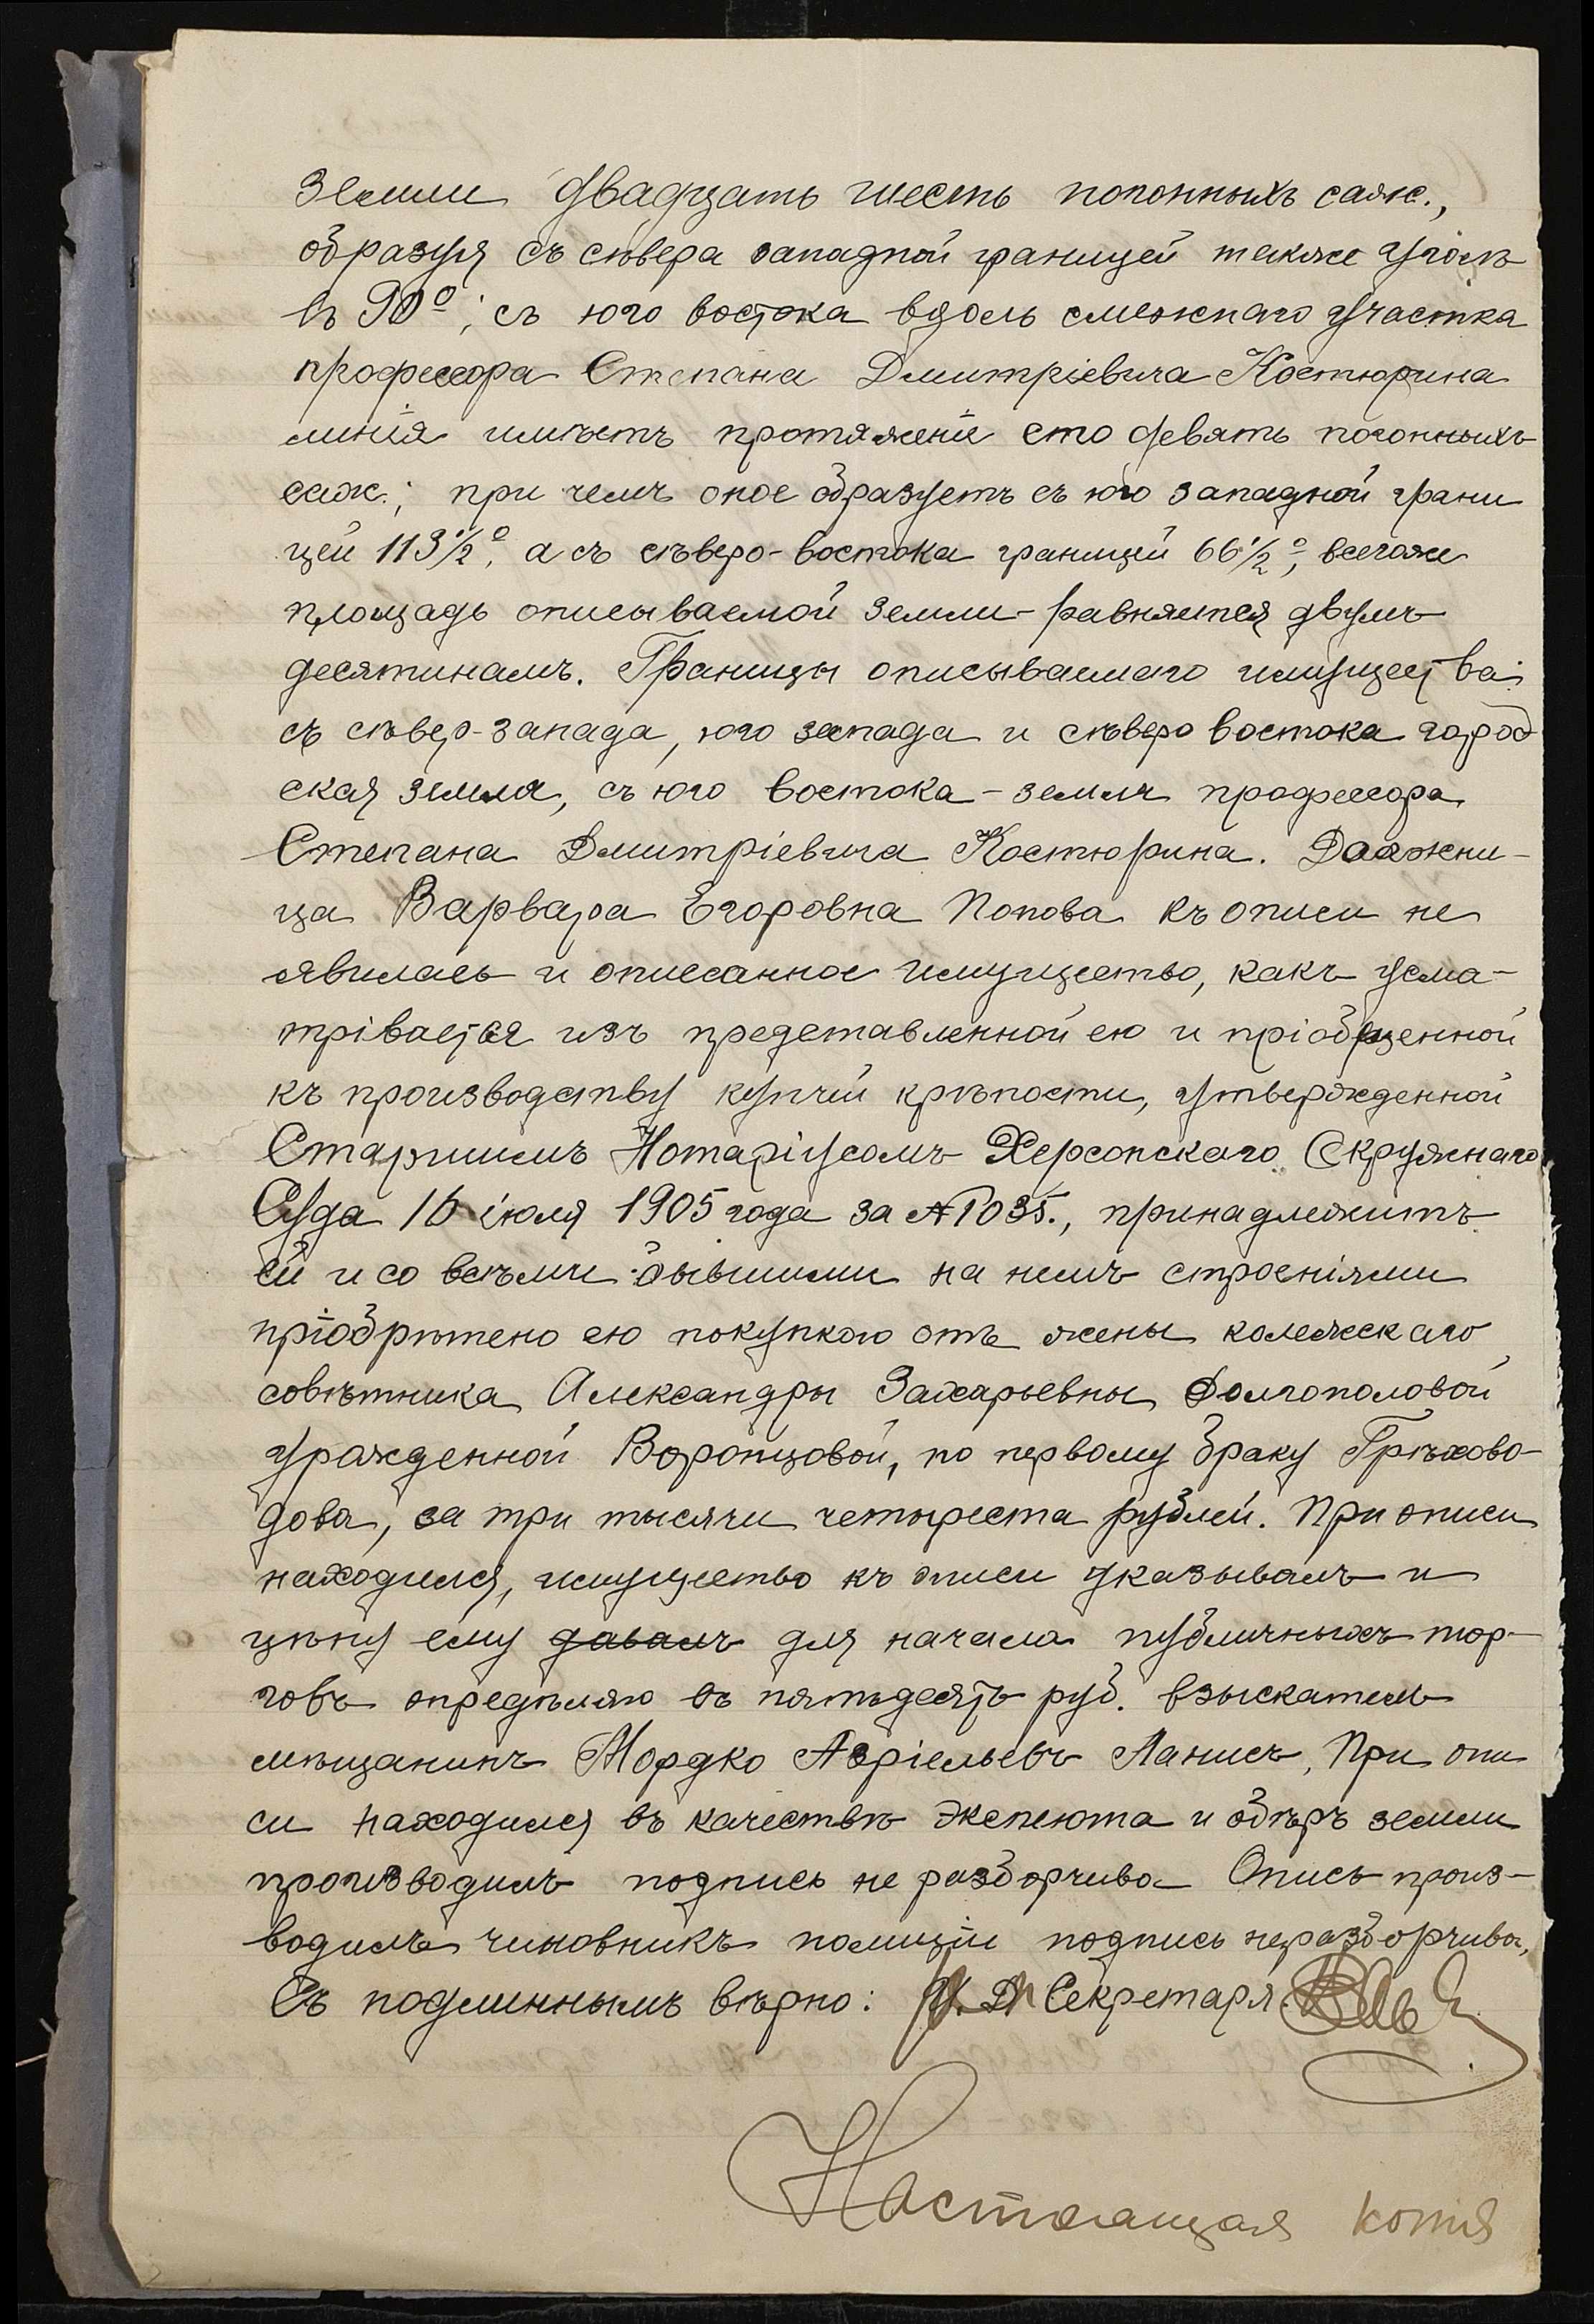 земли двадцать шесть погонныхъ саж.,
образуя съ сѣвера западной границей также уголъ
въ 90º; съ юго востока вдоль смежнаго участка
профессора Степана Дмитріевича Костюрина
линія имѣетъ протяженіе сто девять погонныхъ
саж.; при чемъ оное образуетъ съ юго западной грани
цей 113½º, а съ сѣверо-востока границей 66½º, всегоже
площадь описываемой земли равняется двумъ
десятинамъ. Границы описываемаго имущества:
съ сѣвер-запада, юго запада и сѣверо востока город
ская земля, съ юго востока - земля профессора
Степана Дмитріевича Костюрина. Должни-
ца Варвара Егоровна Попова къ описи не
явилась и описанное имущество, какъ усма-
тривается изъ представленной ею и пріобщенной
къ производству купчей крѣпости, утвержденной
Старшимъ Нотаріусомъ Херсонскаго Окружнаго
Суда 16 іюля 1905 года за № 1035., принадлежитъ
ей и со всѣми бывшими на немъ строеніями
пріобрѣтено ею покупкою отъ жены коллежскаго
совѣтника Александры Захарьевны Долгополовой
урожденной Воронцовой, по первому браку Грѣхово-
дова, за три тысячи четыреста рублей. При описи
находился, имущество къ описи указывалъ и
цѣну ему давалъ для начала публичныхъ тор-
говъ опредѣляю въ пятьдесятъ руб. взыскатель
мѣщанинъ Мордко Азріельевъ Ланисъ, При опи
си находился въ качествѣ экспеюта и обмѣръ земли
производилъ подпись не разборчива Опись произ-
водилъ чиновникъ полиціи подпись неразборчива,
Съ подлиннымъ вѣрно: И. Д. Секретаря
Настоящая копія